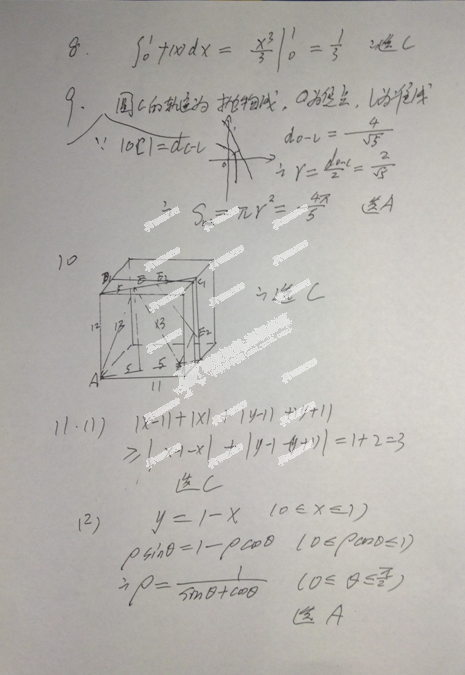 8. ∫₀¹ f(x)dx = x³/3 |₀¹ = 1/3 选C
9. 圆C的轨迹为抛物线, O为焦点, l为准线
∵ |OC| = d_{C-l}
d_{O-l} = 4/√5
∴ r = d_{O-l}/2 = 2/√5
∴ S = πr² = 4π/5 选A
10 ∴选C
B₁ E E₁ C₁
12 13 13 E₂
A 5 5
11
11. (1) |x-1|+|x|+|y-1|+|y+1|
≥|x-1-x|+|y-1-(y+1)|=1+2=3
选C
(2) y=1-x (0≤x≤1)
ρsinθ=1-ρcosθ (0≤ρcosθ≤1)
∴ρ= 1/(sinθ+cosθ) (0≤θ≤π/2)
选A